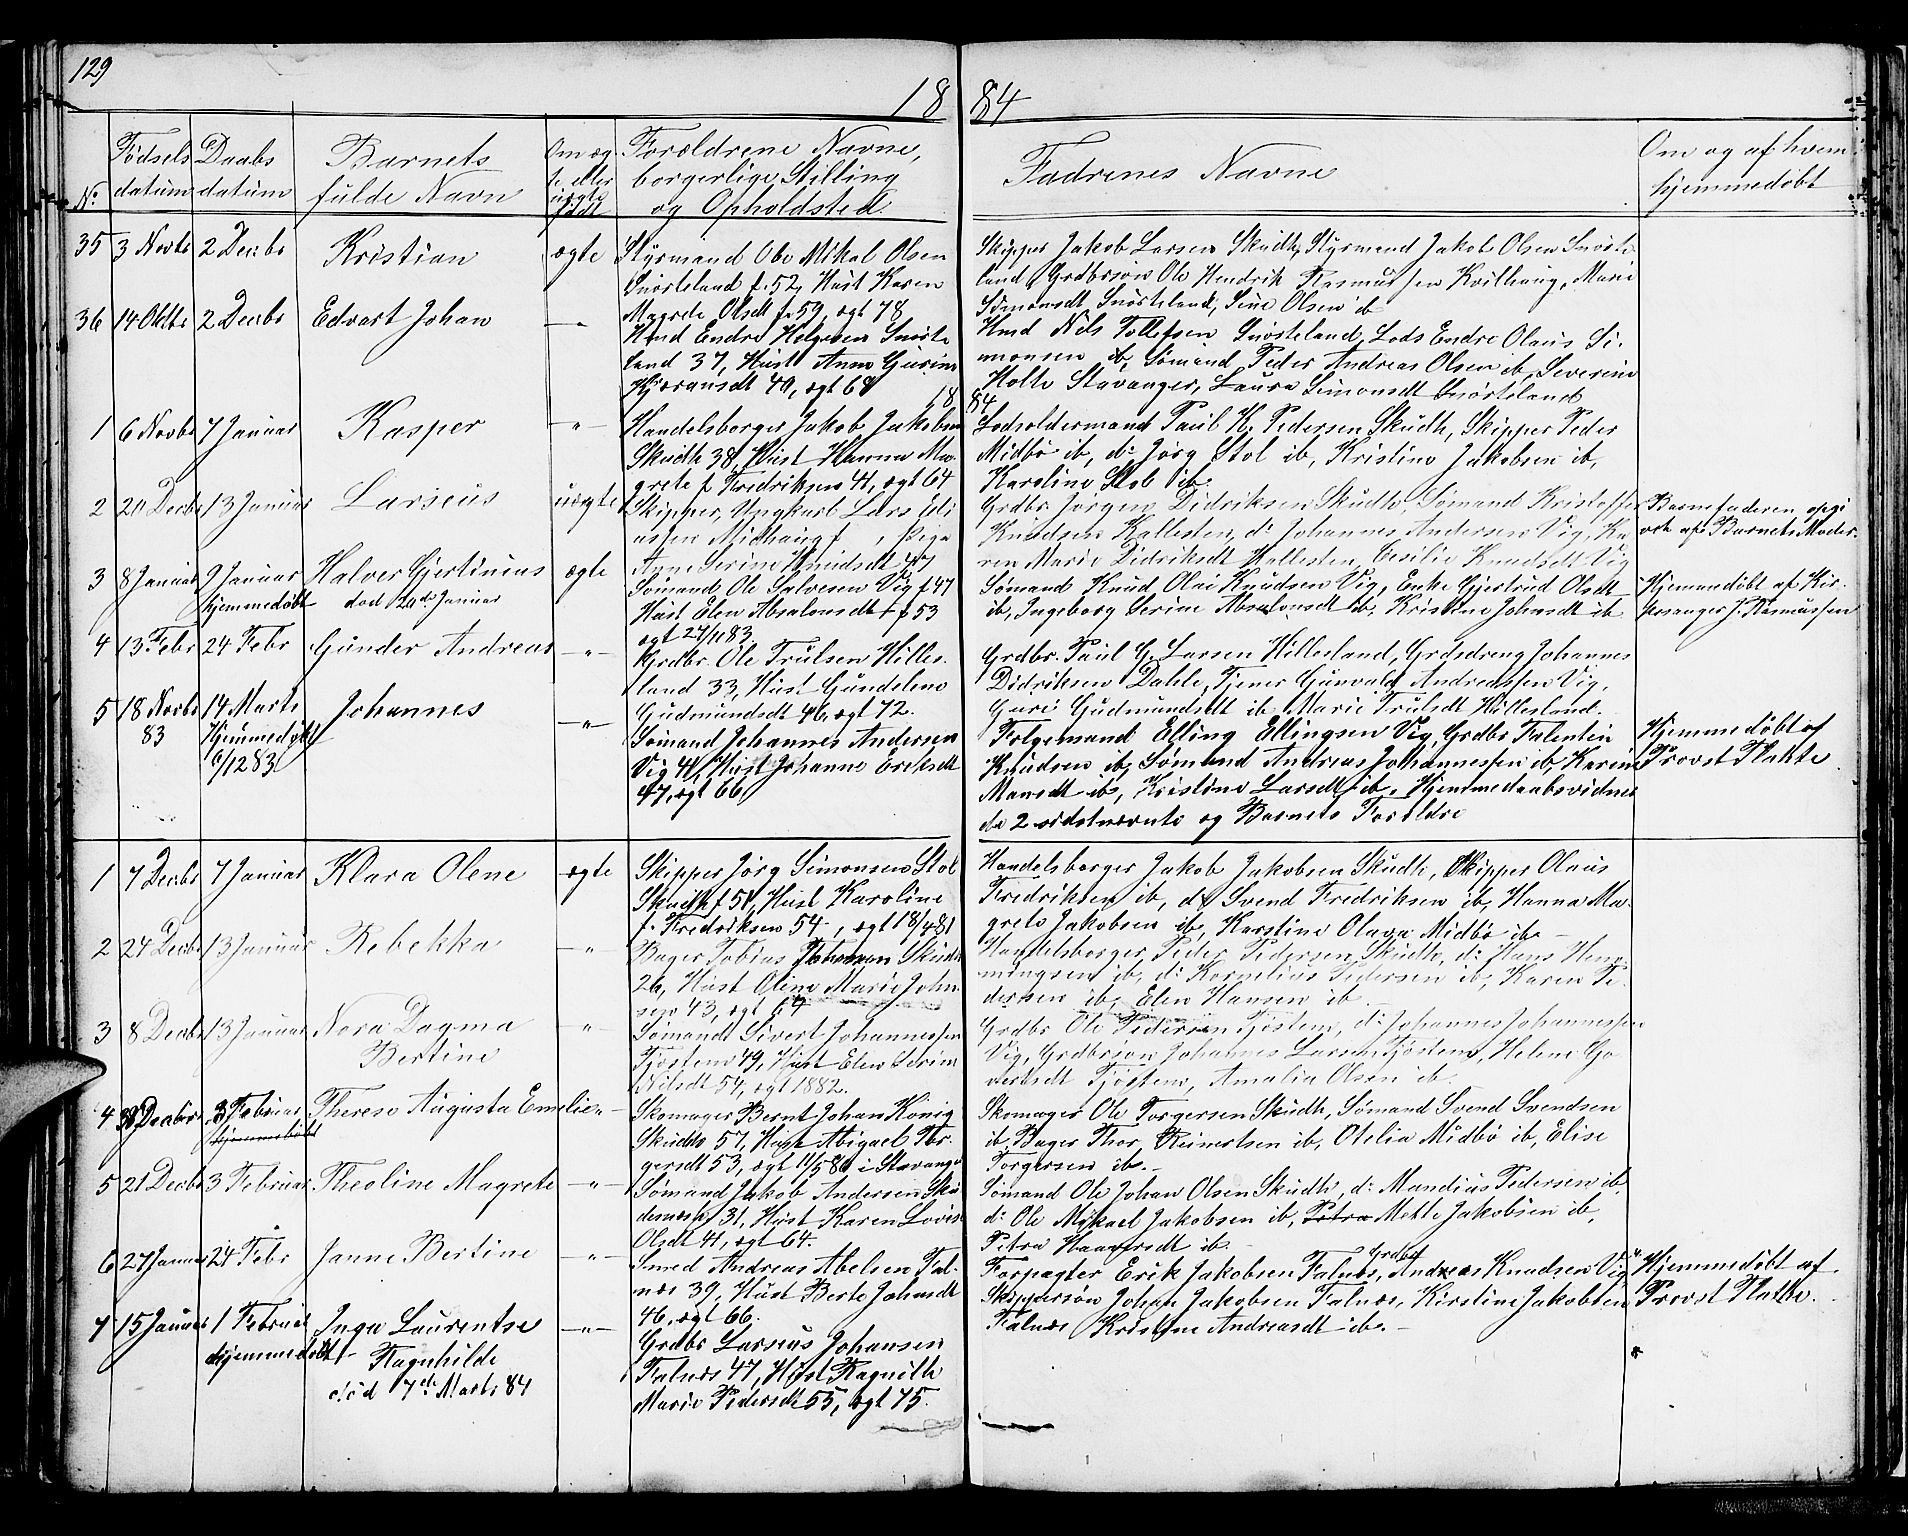 129
18 84
No. Fødsels datum Daabs datum Barnets fulde Navn Om ægte eller uægte født Forældrene Navne, borgerlige Stilling og Opholdsted. Fadrenes Navne Om og af hvem hjemmedøbt
35 3 Novbr 2 Decbr Kristian ægte
Styrmand Ole Mikal Olsen
Snørteland f. 52, Hust Karen
Magrete Olsdt f. 59, ægt 78
Skipper Jakob Larsen Skudh, Styrmand Jakob Olsen Snørte-
land, Grdbrsøn Ole Hendrik Rasmussen Kvilhaug, Marie
Simonsdt Snørteland, Sine Olsen ib
36 14 Oktbr 2 Decbr Edvart Johan —"—
Hmd Endre Helgesen Snørte
land 37, Hust Anna Gurine
Gjøransdt 40, ægt 68
Hmd Nils Tollefsen Snørteland, Lods Endre Olaus Si-
monsen ib, Sømand Peder Andreas Olsen ib, Severine
Holte Stavanger, Laura Simonsdt Snørteland
18 84
1 6 Novbr 7 Januar Kasper —"—
Handelsborger Jakob Jakobsen
Skudh 38, Hust Hanna Ma-
grete f. Fredriksen 41, ægt 64
Lodsoldermand Paul H. Pedersen Skudh, Skipper Peder
Midbø ib, d: Jørg Stol ib, Kristine Jakobsen ib,
Karoline Stol ib.
2 20 Decbr 13 Januar Larseus uægte
Skipper, Ungkarl Lars Eli
assen Midhaug f , Pige
Anne Serine Knudsdt 47
Grdbr. Jørgen Didriksen Skudh, Sømand Kristoffer
Knudsen Hallesten, d: Johannes Andersen Vig, Ka
ren Marie Didriksdt Hallesten, Cesilie Knudsdt Vig
Barnefaderen opgi
vet af Barnets Moder.
3 8 Januar 9 Januar Halver Gjertinius ægte
hjemmedøbt død 20de Januar
Sømand Ole Salvesen Vig f 47
Hust Elen Absalonsdt f 53
ægt 27/11 83.
Sømand Knud Olai Knudsen Vig, Enke Gjertrud Olsdt
ib, Ingeborg Serine Absalonsdt ib, Kristine Johnsdt ib
Hjemmedøbt af Kir-
kesanger J. Rasmussen
4 13 Febr 24 Febr Gunder Andreas —"—
Grdbr. Ole Trulsen Hilles-
land 33, Hust Gundeline
Gudmundsdt 46, ægt 72.
Grdbr. Paul G. Larsen Hillesland, Grdsdreng Johannes
Didriksen Dalele, Tjener Gunvald Andreassen Vig,
Guri Gudmundsdt ib, Marie Trulsdt Hillesland.
5 18 Novbr 83 14 Marts Johannes —"—
Hjemmedøbt
6/12 83
Sømand Johannes Andersen
Vig 41, Hust Johanne Eriksdt
47, ægt 66
Folgemand Elling Ellingsen Vig, Grdbr Falentin
Knudsen ib, Sømand Andreas Johannessen ib, Karine
Mansdt ib, Kristine Larsdt ib. Hjemmedaabsvidner
de 2 sidstnævnte og Barnets Forældre
Hjemmedøbt af
Provst Flakte
1 7 Decbr 7 Januar Klara Olene ægte
Skipper Jørg Simonsen Stol
Skudh f 51, Hust Karoline
f. Fredriksen 54 , ægt 18/4 81
Handelsborger Jakob Jakobsen Skudh, Skipper Olaus
Fredriksen ib, d: Svend Fredriksen ib, Hanna Ma-
grete Jakobsen ib, Karstine Olava Midbø ib —
2 24 Decbr 13 Januar Rebekka —"—
Bager Tobias Johnsen Skudh
26, Hust Oline Marie John
sen 43, ægt 64
Handelsborger Peder Pedersen Skudh, d: Hans Hem-
mingsen ib, d: Kornelius Pedersen ib, Karen Pe-
dersen ib, Elen Hansen ib. —
3 8 Decbr 13 Januar Nora Dagma Bertine "
Sømand Sivert Johannessen
Tjøstem 49, Hust Elen Serine
Nilsdt 54, ægt 1882.
Grdbr Ole Pedersen Tjøstem, d: Johannes Johannessen
Vig, Grdbrsøn Johannes Larsen Tjøstem, Helene Go-
vertsdt Tjøstem, Amalia Olsen ib.
4 30 Decbr 3 Februar Therese Augusta Emelie "—
Hjemmedøbt
Skomager Bernt Johan König
Skudh 57, Hust Abigael Tor-
gersdt 53, ægt 11/5 80 i Stavanger
Skomager Ole Torgersen Skudh, Sømand Svend Svendsen
ib, Bager Thor Reinertsen ib, Otelia Midbø ib, Elise
Torgersen ib. —
5 21 Decbr 3 Februar Theoline Magrete —"—
Sømand Jakob Andersen Sku
desnæsh 31, Hust Karen Lovise
Olsdt 41, ægt 64.
Sømand Ole Johan Olsen Skudh, d: Mandius Pedersen ib,
d: Ole Mikael Jakobsen ib, Petra Mette Jakobsen ib,
Petra Haagersdt ib. —
6 27 Januar 24 Febr Janne Bertine —"—
Smed Andreas Abelsen Fal-
næs 39, Hust Berte Johnsdt
46, ægt 66.
Forpagter Erik Jakobsen Falnæs, Grdbr Andreas Knudsen Vig
Skippersøn Johan Jakobsen Falnæs, Kirstine Jakobsen
Falnæs Kristine Andreasdt ib. —
Hjemmedøbt af
Provst Flakte.
7 15 Januar 1 Februar Inga Laurentse —"—
Hjemmedøbt Ragnhilde
død 7de Marts 84
Grdbr Larseus Johansen
Falnæs 47, Hust Ragnilde
Marie Pedersdt 55, ægt 75.